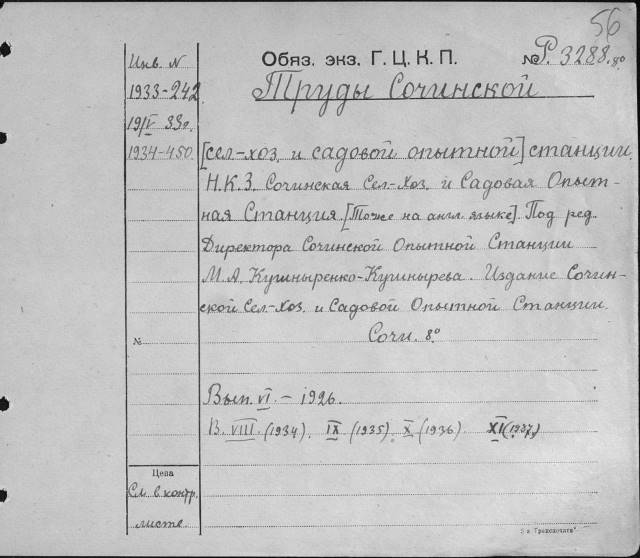 56
Обяз. экз. Г. Ц. К. П. № Р. 3288. 8°
Инв. N
1933-242
19/V 33г.
1934-450
Труды Сочинской
[сел.-хоз. и садовой опытной] станции.
Н.К.З. Сочинская Сел.-Хоз. и Садовая Опыт-
ная Станция. [Тоже на англ. языке]. Под ред.
Директора Сочинской Опытной Станции
М.А. Кушныренко-Кушнырева. Издание Сочин-
ской Сел.-Хоз. и Садовой Опытной Станции.
Сочи. 8°
№
Вып. VI. – 1926.
В. VIII (1934). IX (1935). X (1936). XI (1937)
Цена
См. в контр.
листе.